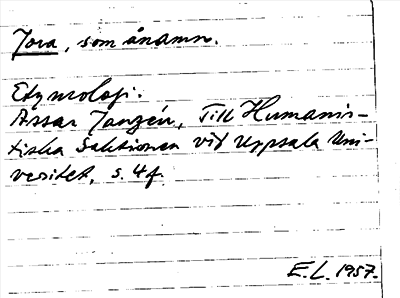 Jora, som ånamn.
Etymologi.
Assar Janzén, Till Humanis-
tiska Sektionen vid Uppsala Uni-
versitet, s. 4f.
E.L. 1957.